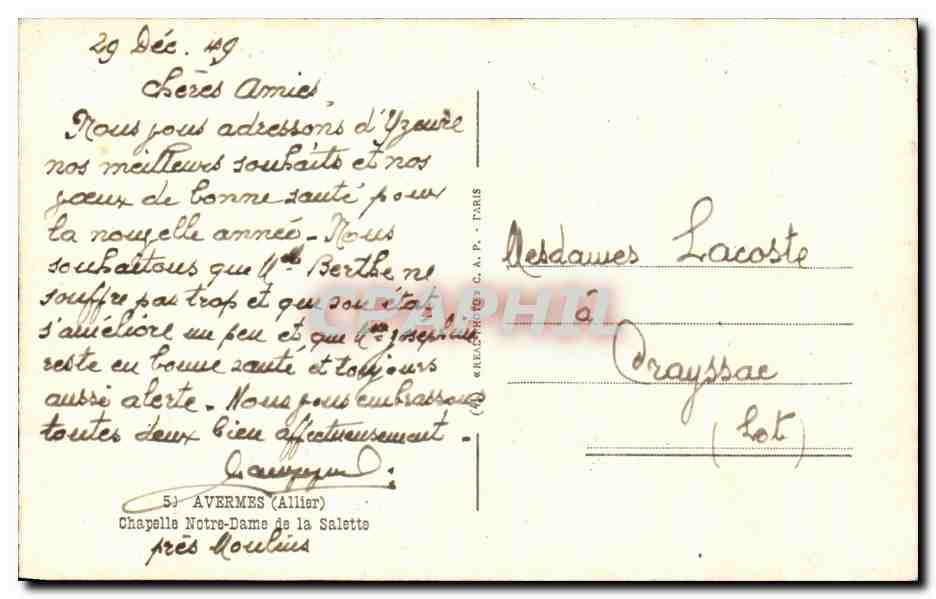 29 Déc. 49
Chères Amies,
Nous vous adressons d'Yzeure
nos meilleurs souhaits et nos
voeux de bonne santé pour
la nouvelle année - Nous
souhaitons que Mlle Berthe ne
souffre pas trop et que son état
s'améliore un peu et que Mme Josephine
reste en bonne santé et toujours
aussi alerte - Nous vous embrassons
toutes deux bien affectueusement -
5) AVERMES (Allier)
Chapelle Notre-Dame de la Salette
près Moulins
«REAL-PHOTO» C. A. P. - PARIS
CPAPHIL
Mesdames Lacoste
à
Prayssac
(Lot)